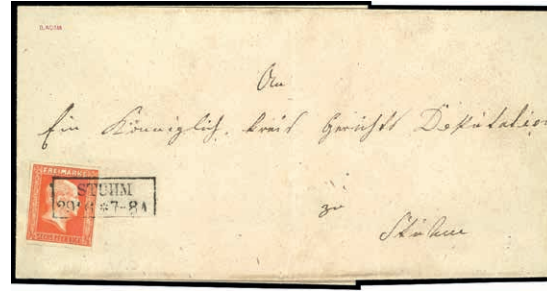 An
Ein Königlich. Kreis Gerichts Deputation
zu
Stuhm
FREIMARKE
STUHM
29 6 *7-8A